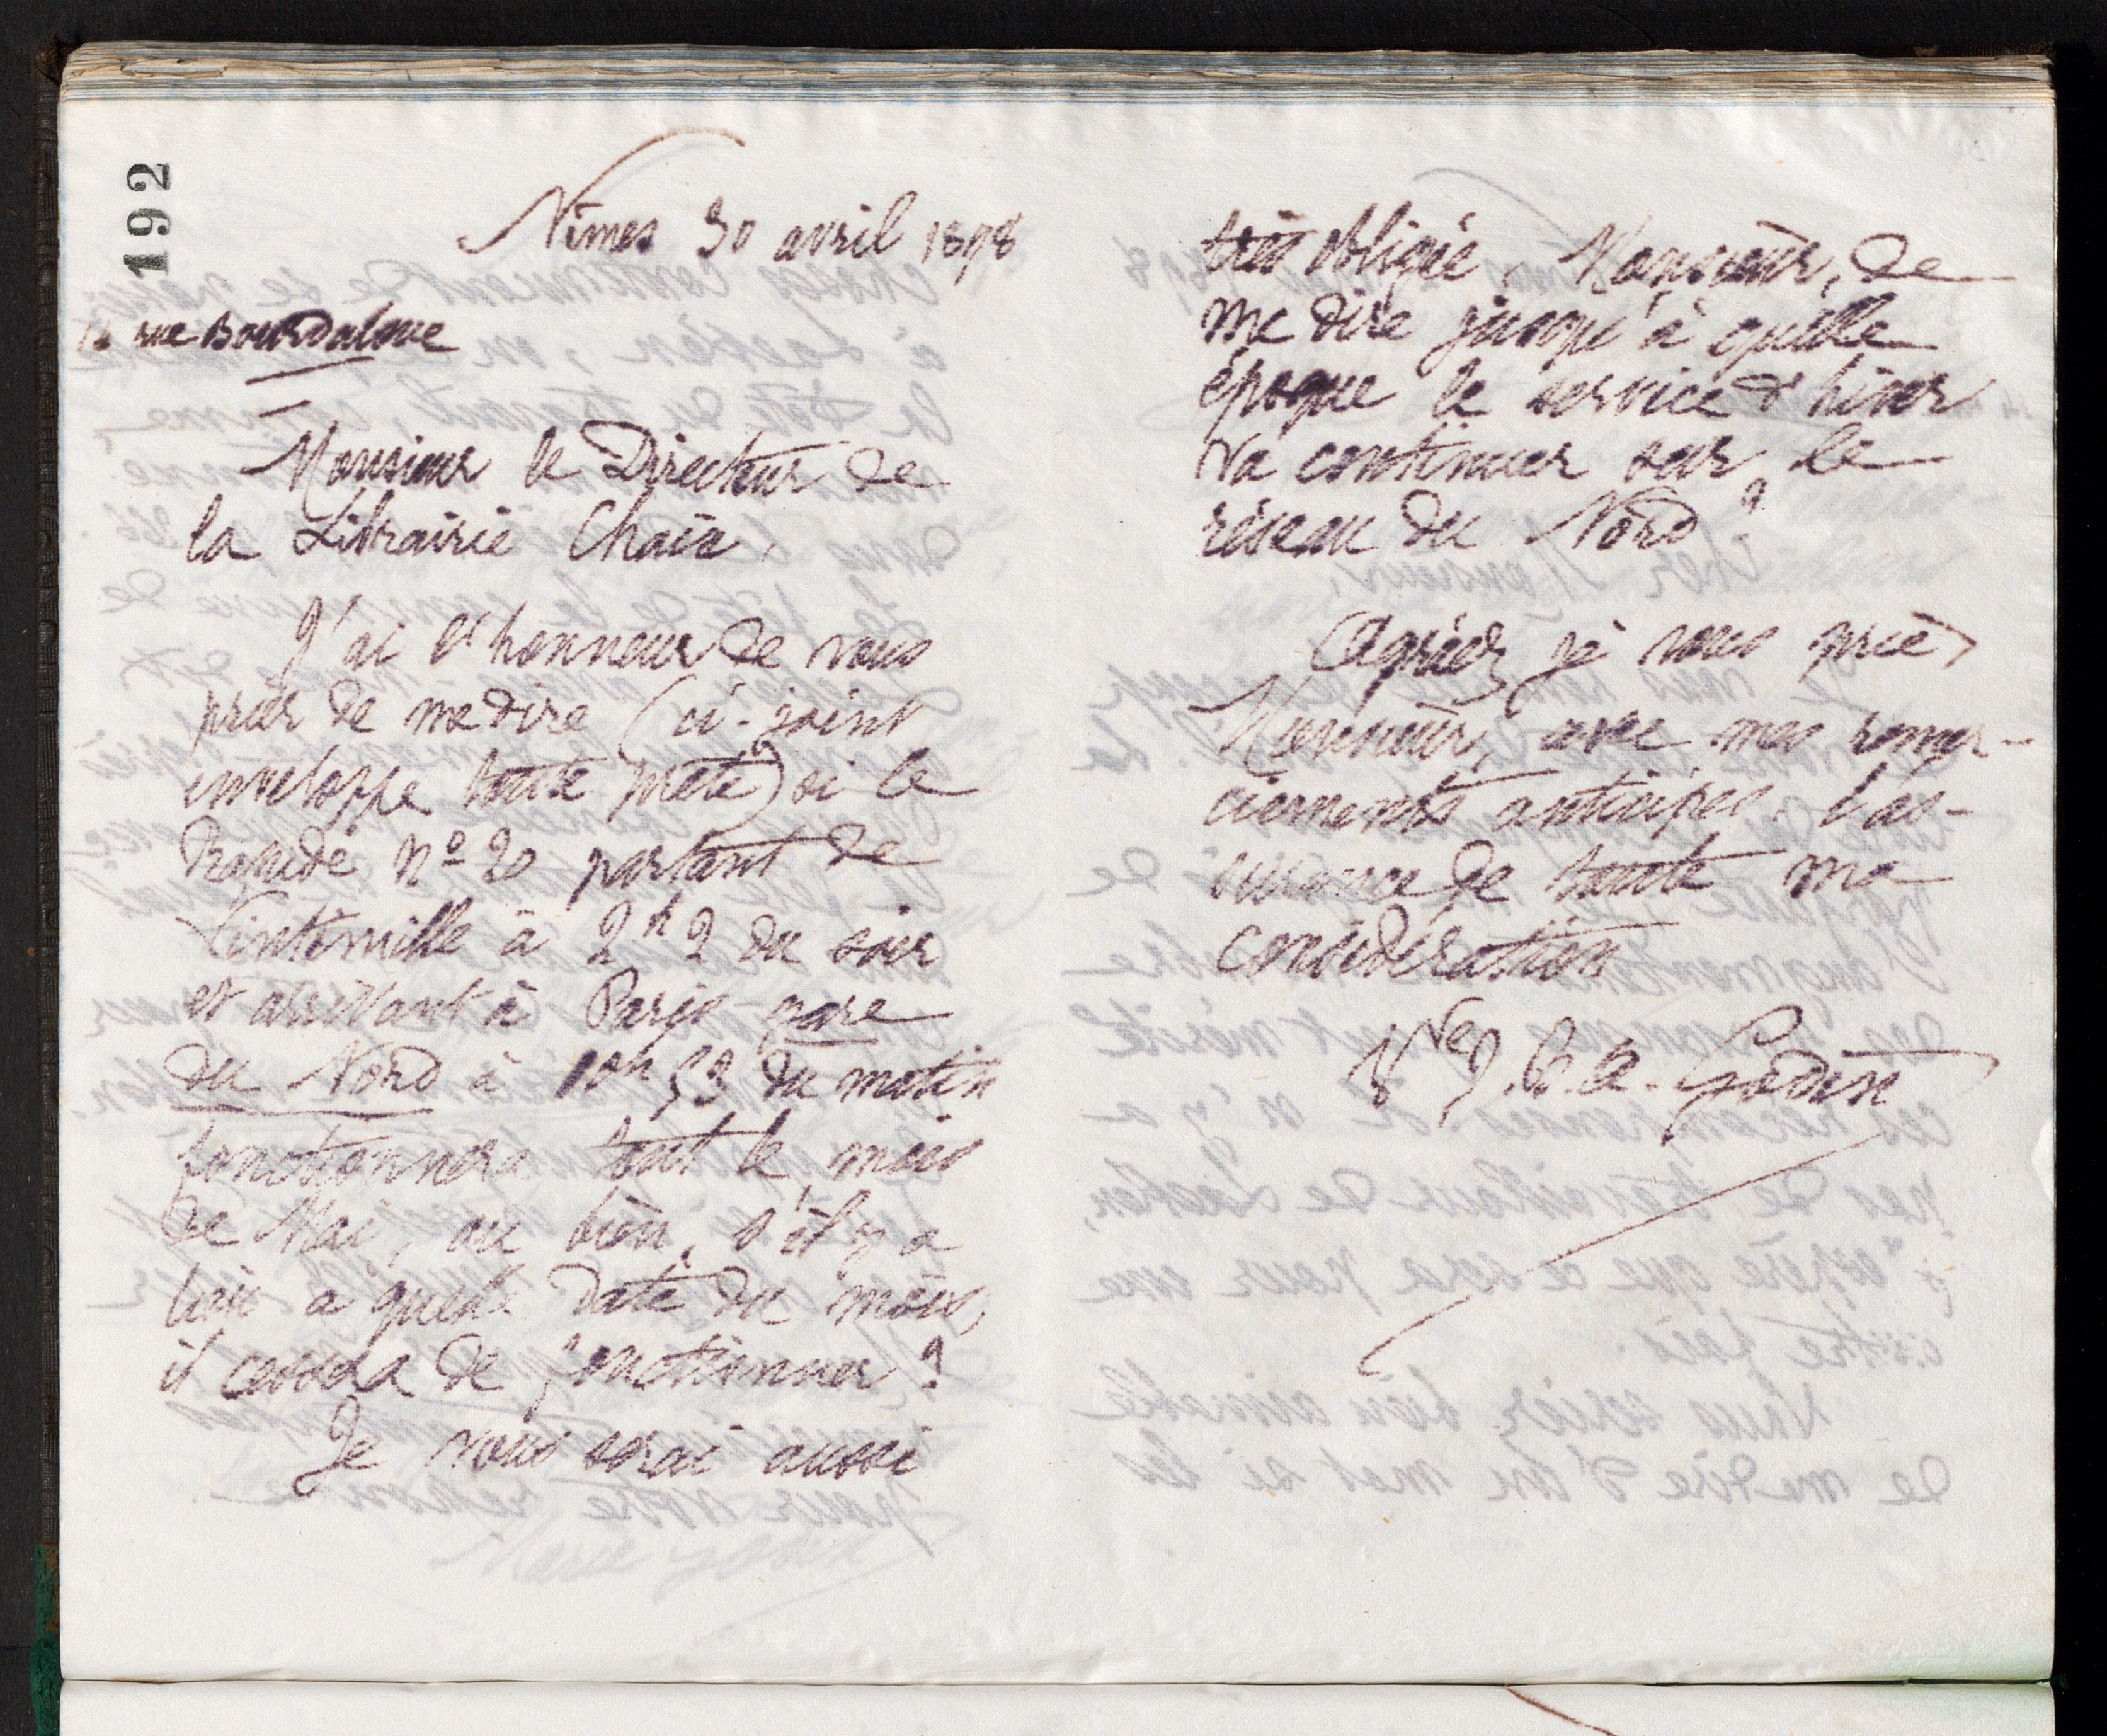 192
Nîmes 30 avril 1898
14 rue Bourdaloue
Monsieur le Directeur de
la Librairie Chaix,
J'ai l'honneur de vous
prier de me dire (ci-joint
enveloppe toute prête) si le
Rapide nº 20 partant de
Vintimille à 2h 2 du soir
et arrivant à Paris gare
du Nord à 10h 53 du matin
fonctionnera tout le mois
de Mai, ou bien, s'il y a
lieu à quelle date du mois,
il cessera de fonctionner ?
Je vous serai aussi
très obligée, Monsieur, de
me dire jusqu'à quelle
époque le service d'hiver
va continuer sur le
réseau du Nord ?
Agréez je vous prie,
Monsieur, avec mes remer-
ciements anticipés, l'as-
surance de toute ma
considération
Vve J. B. A. Godin